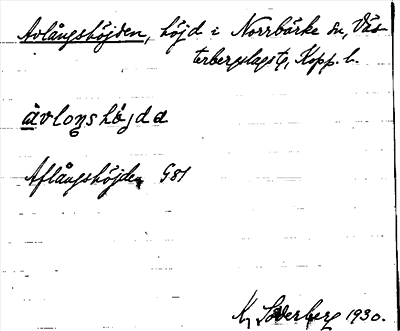 Avlångshöjden, höjd i Norrbärke sn, Väs-
terbergslags tg, Kopp. l.
àvloŋshö̀jda
Aflångshöjden G81
K, Söderberg 1930.